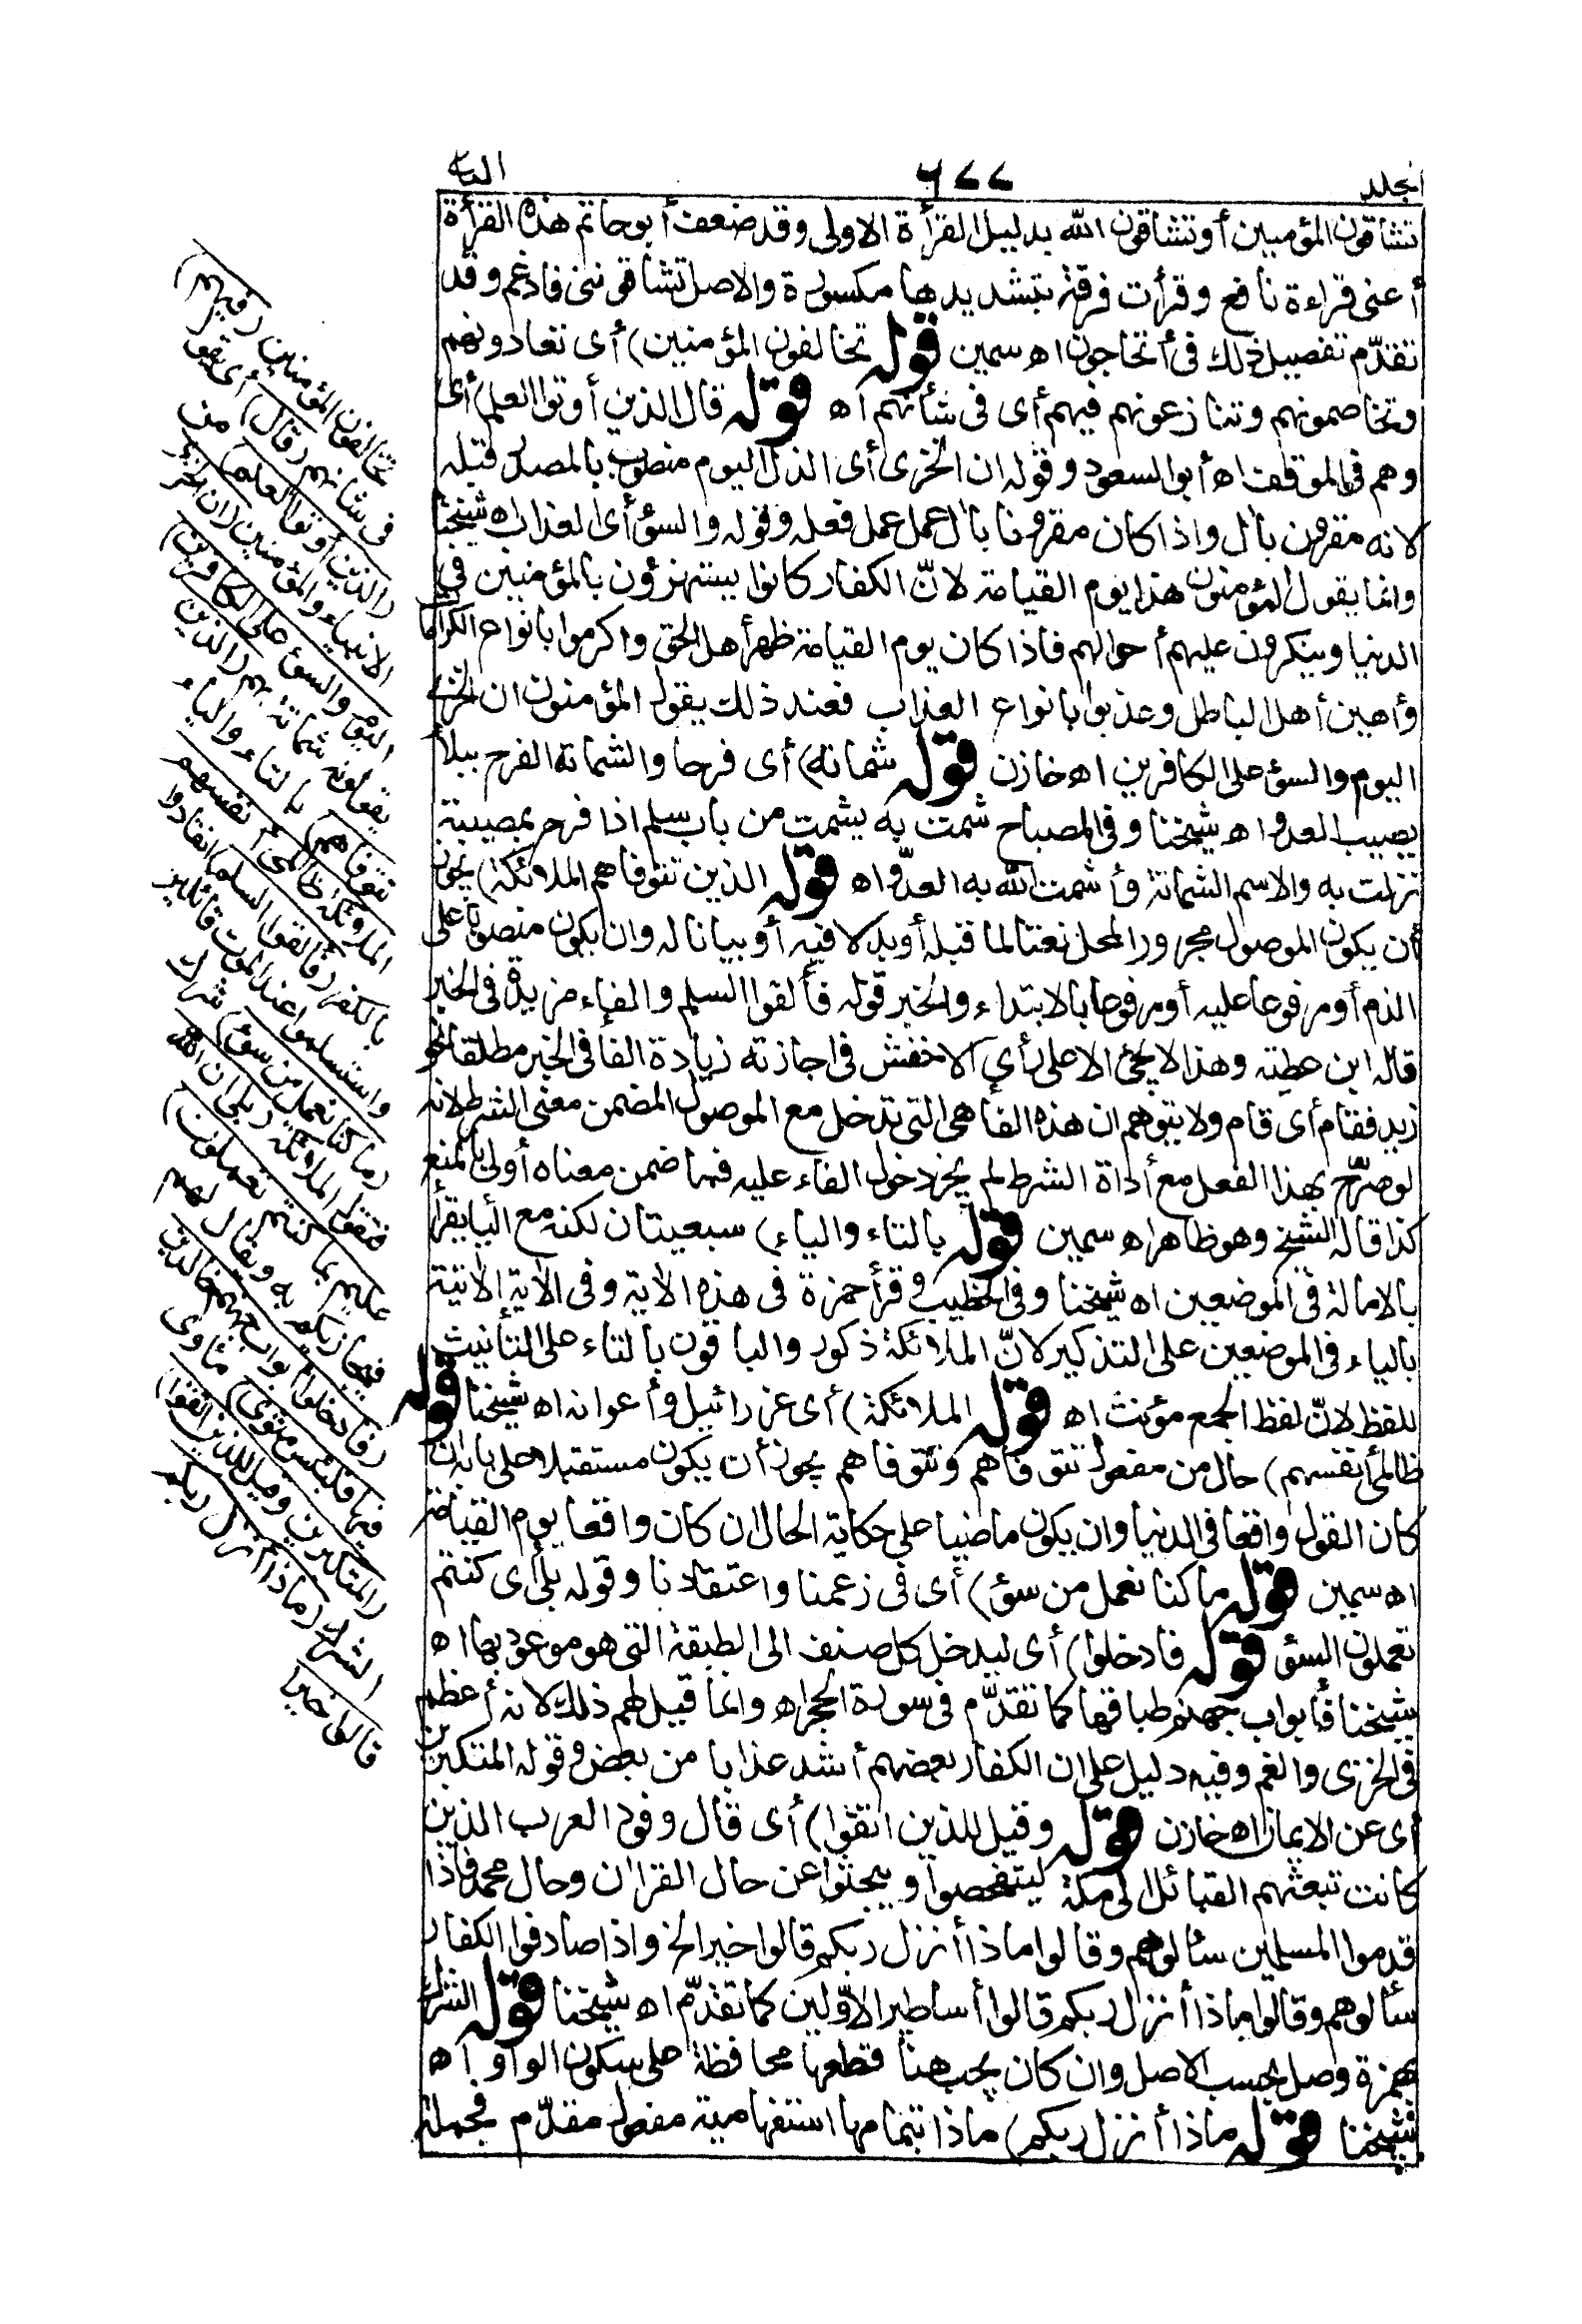 المجلد
٦٧٧
الثانى
تشاقون المؤمنين أو تشاقون الله بدليل القرأة الاولى وقد ضعف أبو حاتم هذه القرأة
أعنى قراءة نافع وقرأت فرقة بتشديدها مكسورة والاصل تشاقوننى فادغم وقد
تقدّم تفصيل ذلك فى أتحاجون اه سمين قوله تخالفون المؤمنين) أى تعادونهم
وتخاصمونهم وتنازعونهم فيهم أى فى شأنهم اه قوله قال الذين أوتوا العلم) أى
وهم فى الموقف اه أبو السعود وقوله ان الخزى أى الذل اليوم منصوب بالمصدر قبله
لانه مقرون بأل واذا كان مقرونا بأل عمل عمل فعله وقوله والسوء أى العذاب اه شيخنا
وانما يقول المؤمنون هذا يوم القيامة لانّ الكفار كانوا يستهزؤن بالمؤمنين فى
الدنيا وينكرون عليهم أحوالهم فاذا كان يوم القيامة ظهر أهل الحق واكرموا بانواع الكرامات
وأهين أهل الباطل وعذبوا بانواع العذاب فعند ذلك يقول المؤمنون ان الخزى
اليوم والسوء على الكافرين اه خازن قوله شماتة) أى فرحا والشماتة الفرح ببلاء
يصيب العدو اه شيخنا وفى المصباح شمت به يشمت من باب سلم اذا فرح بمصيبة
نزلت به والاسم الشماتة وأشمت الله به العدوّ اه قوله الذين تتوفاهم الملائكة) يجوز
أن يكون الموصول مجرور المحل نعتا لما قبله أو بدلا فيه أو بيانا له وان يكون منصوبا على
الذم أو مرفوعا عليه أو مرفوعا بالابتداء والخبر قوله فألقوا السلم والفاء مزيدة فى الخبر
قاله ابن عطية وهذا لا يجئ الا على رأي الاخفش فى اجازته زيادة الفأ فى الخبر مطلقا نحو
زيد فقام أى قام ولا يتوهم ان هذه الفأ هى التى تدخل مع الموصول المضمن معنى الشرط لانه
لو صرّح بهذا الفعل مع أداة الشرط لم يجز دخول الفاء عليه فما ضمن معناه أولى بالمنع
كذا قاله الشيخ وهو ظاهر اه سمين قوله بالتاء والياء) سبعيتان لكنه مع اليأ يقرأ
بالامالة فى الموضعين اه شيخنا وفى الخطيب وقرأ حمزة فى هذه الاية وفى الاية الاتية
بالياء فى الموضعين على التذكير لانّ الملائكة ذكور والباقون بالتاء على التأنيث
للفظ لانّ لفظ الجمع مؤنث اه قوله الملائكة) أى عزرائيل وأعوانه اه شيخنا قوله
ظالمى أنفسهم) حال من مفعول تتوفاهم وتتوفاهم يجوز أن يكون مستقبلا على بابه ان
كان القول واقعا فى الدنيا وان يكون ماضيا على حكاية الحال ان كان واقعا يوم القيامة
اه سمين قوله ما كنا نعمل من سوء) أى فى زعمنا واعتقادنا وقوله بلى أى كنتم
تعملون السوء قوله فادخلوا) أى ليدخل كل صنف الى الطبقة التى هو موعود بها اه
شيخنا فأبواب جهنم طباقها كما تقدّم فى سورة الحجر اه وانما قيل لهم ذلك لانه أعظم
فى الخزى والغم وفيه دليل على ان الكفار بعضهم أشد عذابا من بعض وقوله المتكبرين
أى عن الايمان اه خازن قوله وقيل للذين اتقوا) أى قال وفود العرب الذين
كانت تبعثهم القبائل الى مكة ليتفحصوا ويبحثوا عن حال القران وحال محمد فاذا
قدموا المسلمين سألوهم وقالوا ماذا أنزل ربكم قالوا خيرا الخ واذا صادفوا الكفار
سألوهم وقالوا ماذا أنزل ربكم قالوا أساطير الاوّلين كما تقدّم اه شيخنا قوله الشرك
بهمزة وصل بحسب الاصل وان كان يجب هنا قطعها محافظة على سكون الواو اه
شيخنا قوله ماذا أنزل ربكم) ماذا بتمامها استفهامية مفعول مقدّم فجملة
تخالفون المؤمنين (فيهم)
فى شأنهم (قال) أى يقول
(الذين أوتوا العلم) من
الانبياء والمؤمنين (ان الخزى
اليوم والسوء على الكافرين)
يقولونه شماتة بهم (الذين
تتوفاهم) بالتاء والياء
الملائكة ظالمى أنفسهم
بالكفر (فألقوا السلم) انقادوا
واستسلموا عند الموت قائلين
(ما كنا نعمل من سوء) شرك
فتقول الملائكة (بلى ان الله
عليم بما كنتم تعملون)
فيجازيكم به ويقال لهم
(فادخلوا أبواب جهنم خالدين
فيها فلبئس مثوى) مأوى
(المتكبرين وقيل للذين اتقوا)
الشرك (ماذا أنزل ربكم
قالوا خيرا